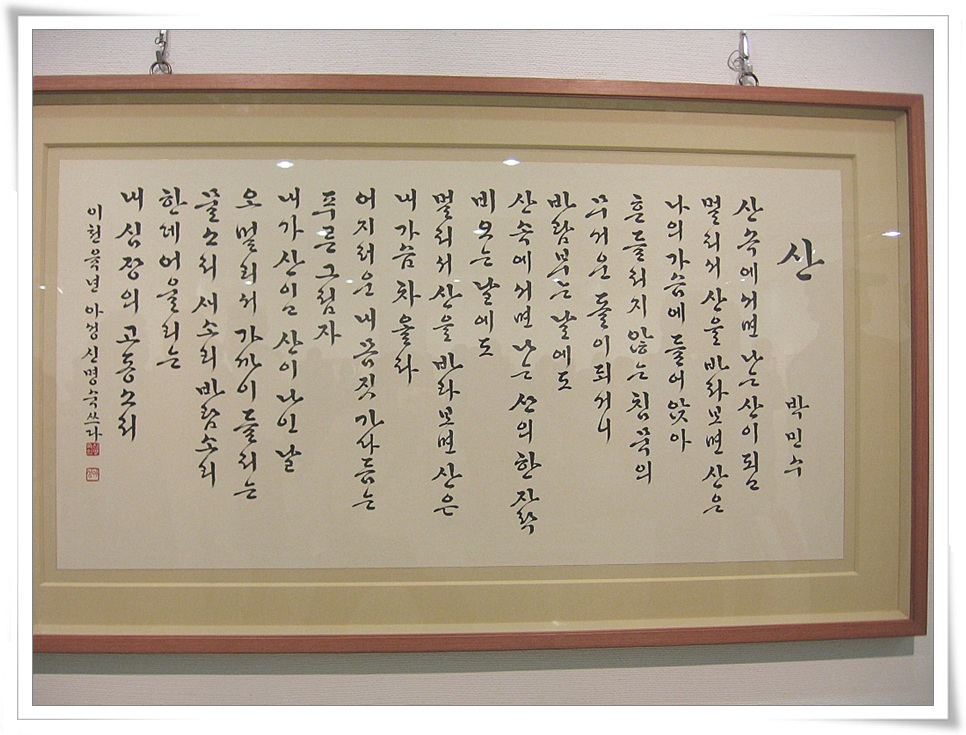 산
박민수
산속에 서면 나는 산이 되고
멀리서 산을 바라보면 산은
나의 가슴에 들어 앉아
흔들리지 않는 침묵의
무거운 돌이 되거니
바람 부는 날에도
산속에 서면 나는 산의 한 자락
비 오는 날에도
멀리서 산을 바라보면 산은
내 가슴 차올라
어지러운 내 몸짓 가다듬는
푸른 그림자
내가 산이고 산이 나인 날
오 멀리서 가까이 들리는
물소리 새소리 바람소리
한데 어울리는
내 심장의 고동소리
이천육년 아정 신명숙 쓰다